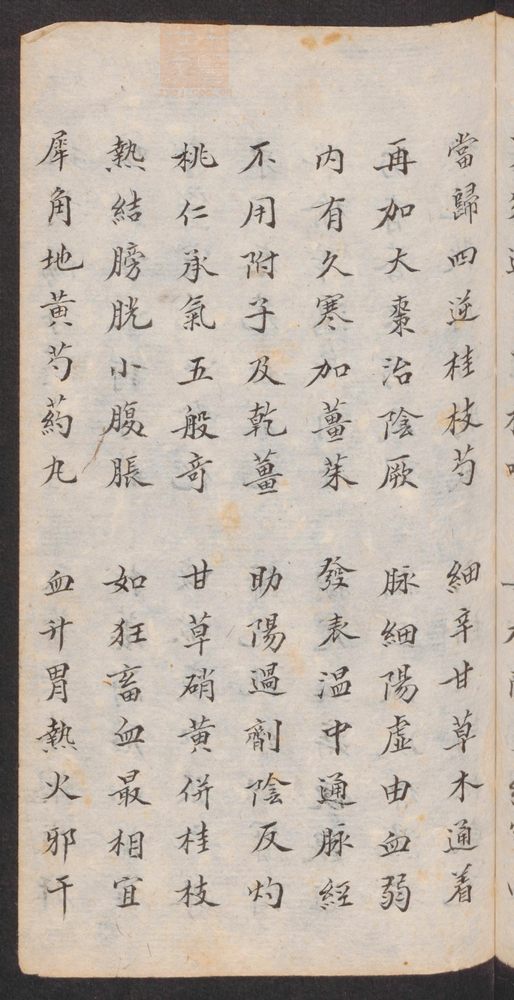 當歸四逆桂枝芍 細辛甘草木通着
再加大棗治陰厥 脉細陽虛由血弱
内有久寒加薑茱 發表温中通脉經
不用附子及乾薑 助陽過劑陰反灼
桃仁承氣五般奇 甘草硝黄併桂枝
熱結膀胱小腹脹 如狂畜血最相宜
犀角地黄芍葯丸 血升胃熱火邪干